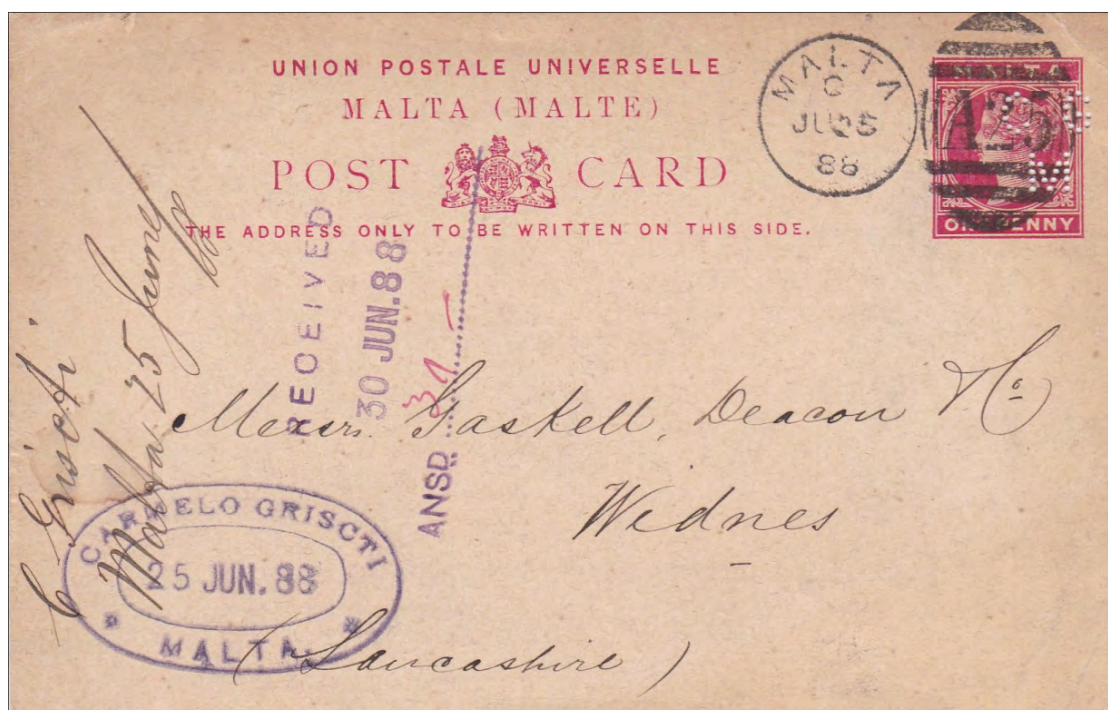 UNION POSTALE UNIVERSELLE
MALTA (MALTE)
POST CARD
THE ADDRESS ONLY TO BE WRITTEN ON THIS SIDE.
MALTA
C
JU 25
88
A25
ONE PENNY
C G
M
RECEIVED
30 JUN. 88
ANSD
C Griscti
Malta, 25 June/
88
Messrs. Gaskell, Deacon & Co
Widnes
(Lancashire)
CARMELO GRISCTI
25 JUN. 88
MALTA